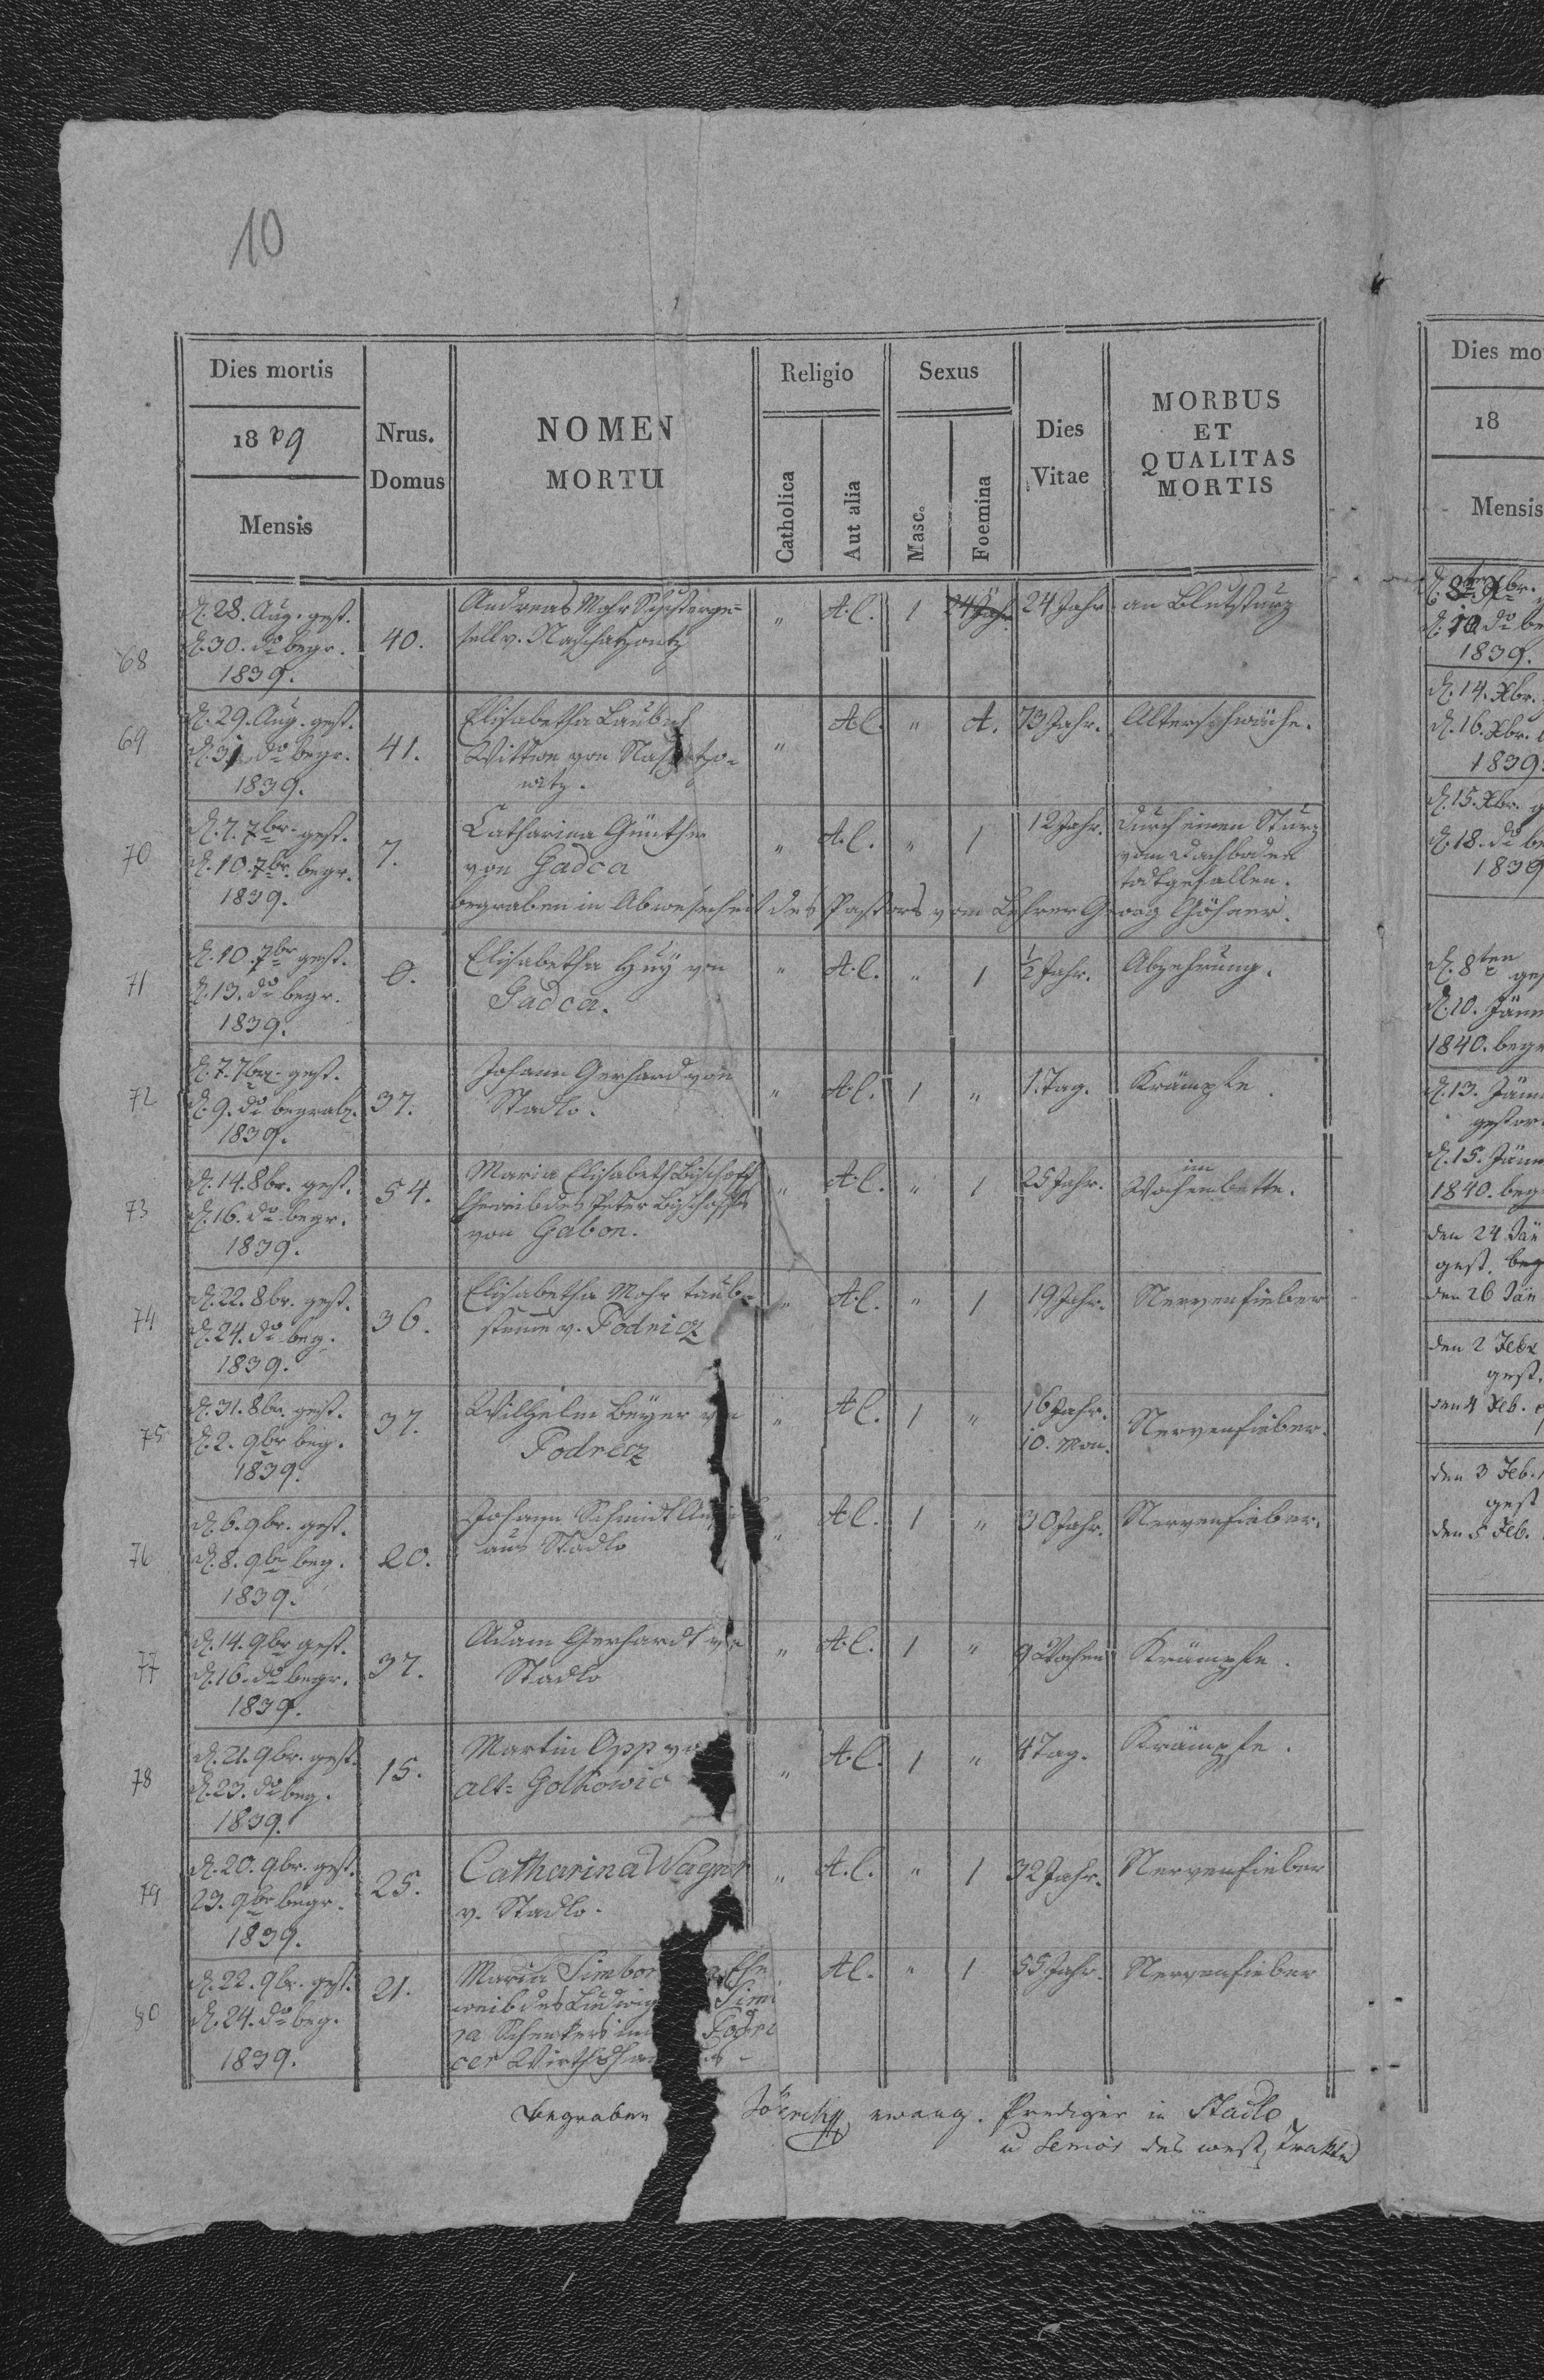 10
Dies mortis
1839
Mensis
Nrus. Domus
NOMEN MORTUI
Religio
Catholica
Aut alia
Sexus
Masc.
Foemina
Dies Vitae
MORBUS ET QUALITAS MORTIS
68
d. 28. Aug. gest.
d. 30. do begr.
1839.
40.
Andreas Mohr Schusterge=
sell v.
" A.C. 1 24 Jahr an Blutsturz
69
d. 29. Aug. gest.
d. 31. do begr.
1839.
41.
Elisabetha Laubach
Wittwe von
witz.
" A.C. " A. 73 Jahr. Altersschwäche.
70
d. 7. 7br. gest.
d. 10. 7br. begr.
1839.
7.
Catharina Günther
von Gadca
" A.C. " 1 12 Jahr. durch einen Sturz
vom Dachboden
todtgefallen.
begraben in Abwesenheit des Pastors vom Lehrer Georg
71
d. 10. 7br gest.
d. 13. do begr.
1839.
0.
Elisabetha Huÿ von
Gadca.
" A.C. " 1 ½ Jahr. Abzehrung.
72
d. 7. 7br. gest.
d. 9. do begrab.
1839.
37.
Johann Gerhard von
Stadlo.
" A.C. 1 " 1. Tag. Krämpfe.
73
d. 14. 8br. gest.
d. 16. do begr.
1839.
54.
Maria Elisabeth Bischoff
Eheweib des Peter Bischoffs
von Gabon.
" A.C. " 1 25 Jahr. im
Wochenbette.
74
d. 22. 8br. gest.
d. 24. do beg.
1839.
36.
Elisabetha Mohr taub=
stumm v. Podricz
" A.C. " 1 19 Jahr. Nervenfieber
75
d. 31. 8br. gest.
d. 2. 9br beg.
1839.
37.
Wilhelm Beÿer von
Podrecz
" A.C. 1 " 16 Jahr.
10. Mon.
Nervenfieber.
76
d. 6. 9br. gest.
d. 8. 9br beg.
1839.
20.
Johann Schmidt
aus Stadlo
" A.C. 1 " 30 Jahr. Nervenfieber.
77
d. 14. 9br gest.
d. 16. do begr.
1839.
37.
Adam Gerhardt von
Stadlo
" A.C. 1 " 9 Wochen Krämpfe.
78
d. 21. 9br. gest.
d. 23. do beg.
1839.
15.
Martin Opp
alt= Golkowic
" A.C. 1 " 4 Tag. Krämpfe.
79
d. 20. 9br. gest.
23. 9br begr.
1839.
25.
Catharina Wagner
v. Stadlo.
" A.C. " 1 32 Jahr. Nervenfieber
80
d. 22. 9br. gest.
d. 24. do beg.
1839.
21.
Maria Simbor Ehe
weib des Ludwig Simi
ra Schenkers im Podri
cer
A.C. " 1 55 Jahr. Nervenfieber
Begraben evang. Prediger in Stadlo
u Senior des west.
Dies mor
18
Mensis
d. 10. do be
1839.
d. 14. Xbr.
d. 16. Xbr. b
1839.
d. 15. Xbr. g
d. 18. do be
1839
d. 8ten ges
d. 10. Jänn
1840. begr
d. 13. Jänn
gestor
d. 15. Jänn
1840. beg
den 24 Jän
gest. beg
den 26 Jän
den 2 Febr
gest.
den 4 Feb.
den 3 Feb.
gest
den 5 Feb.